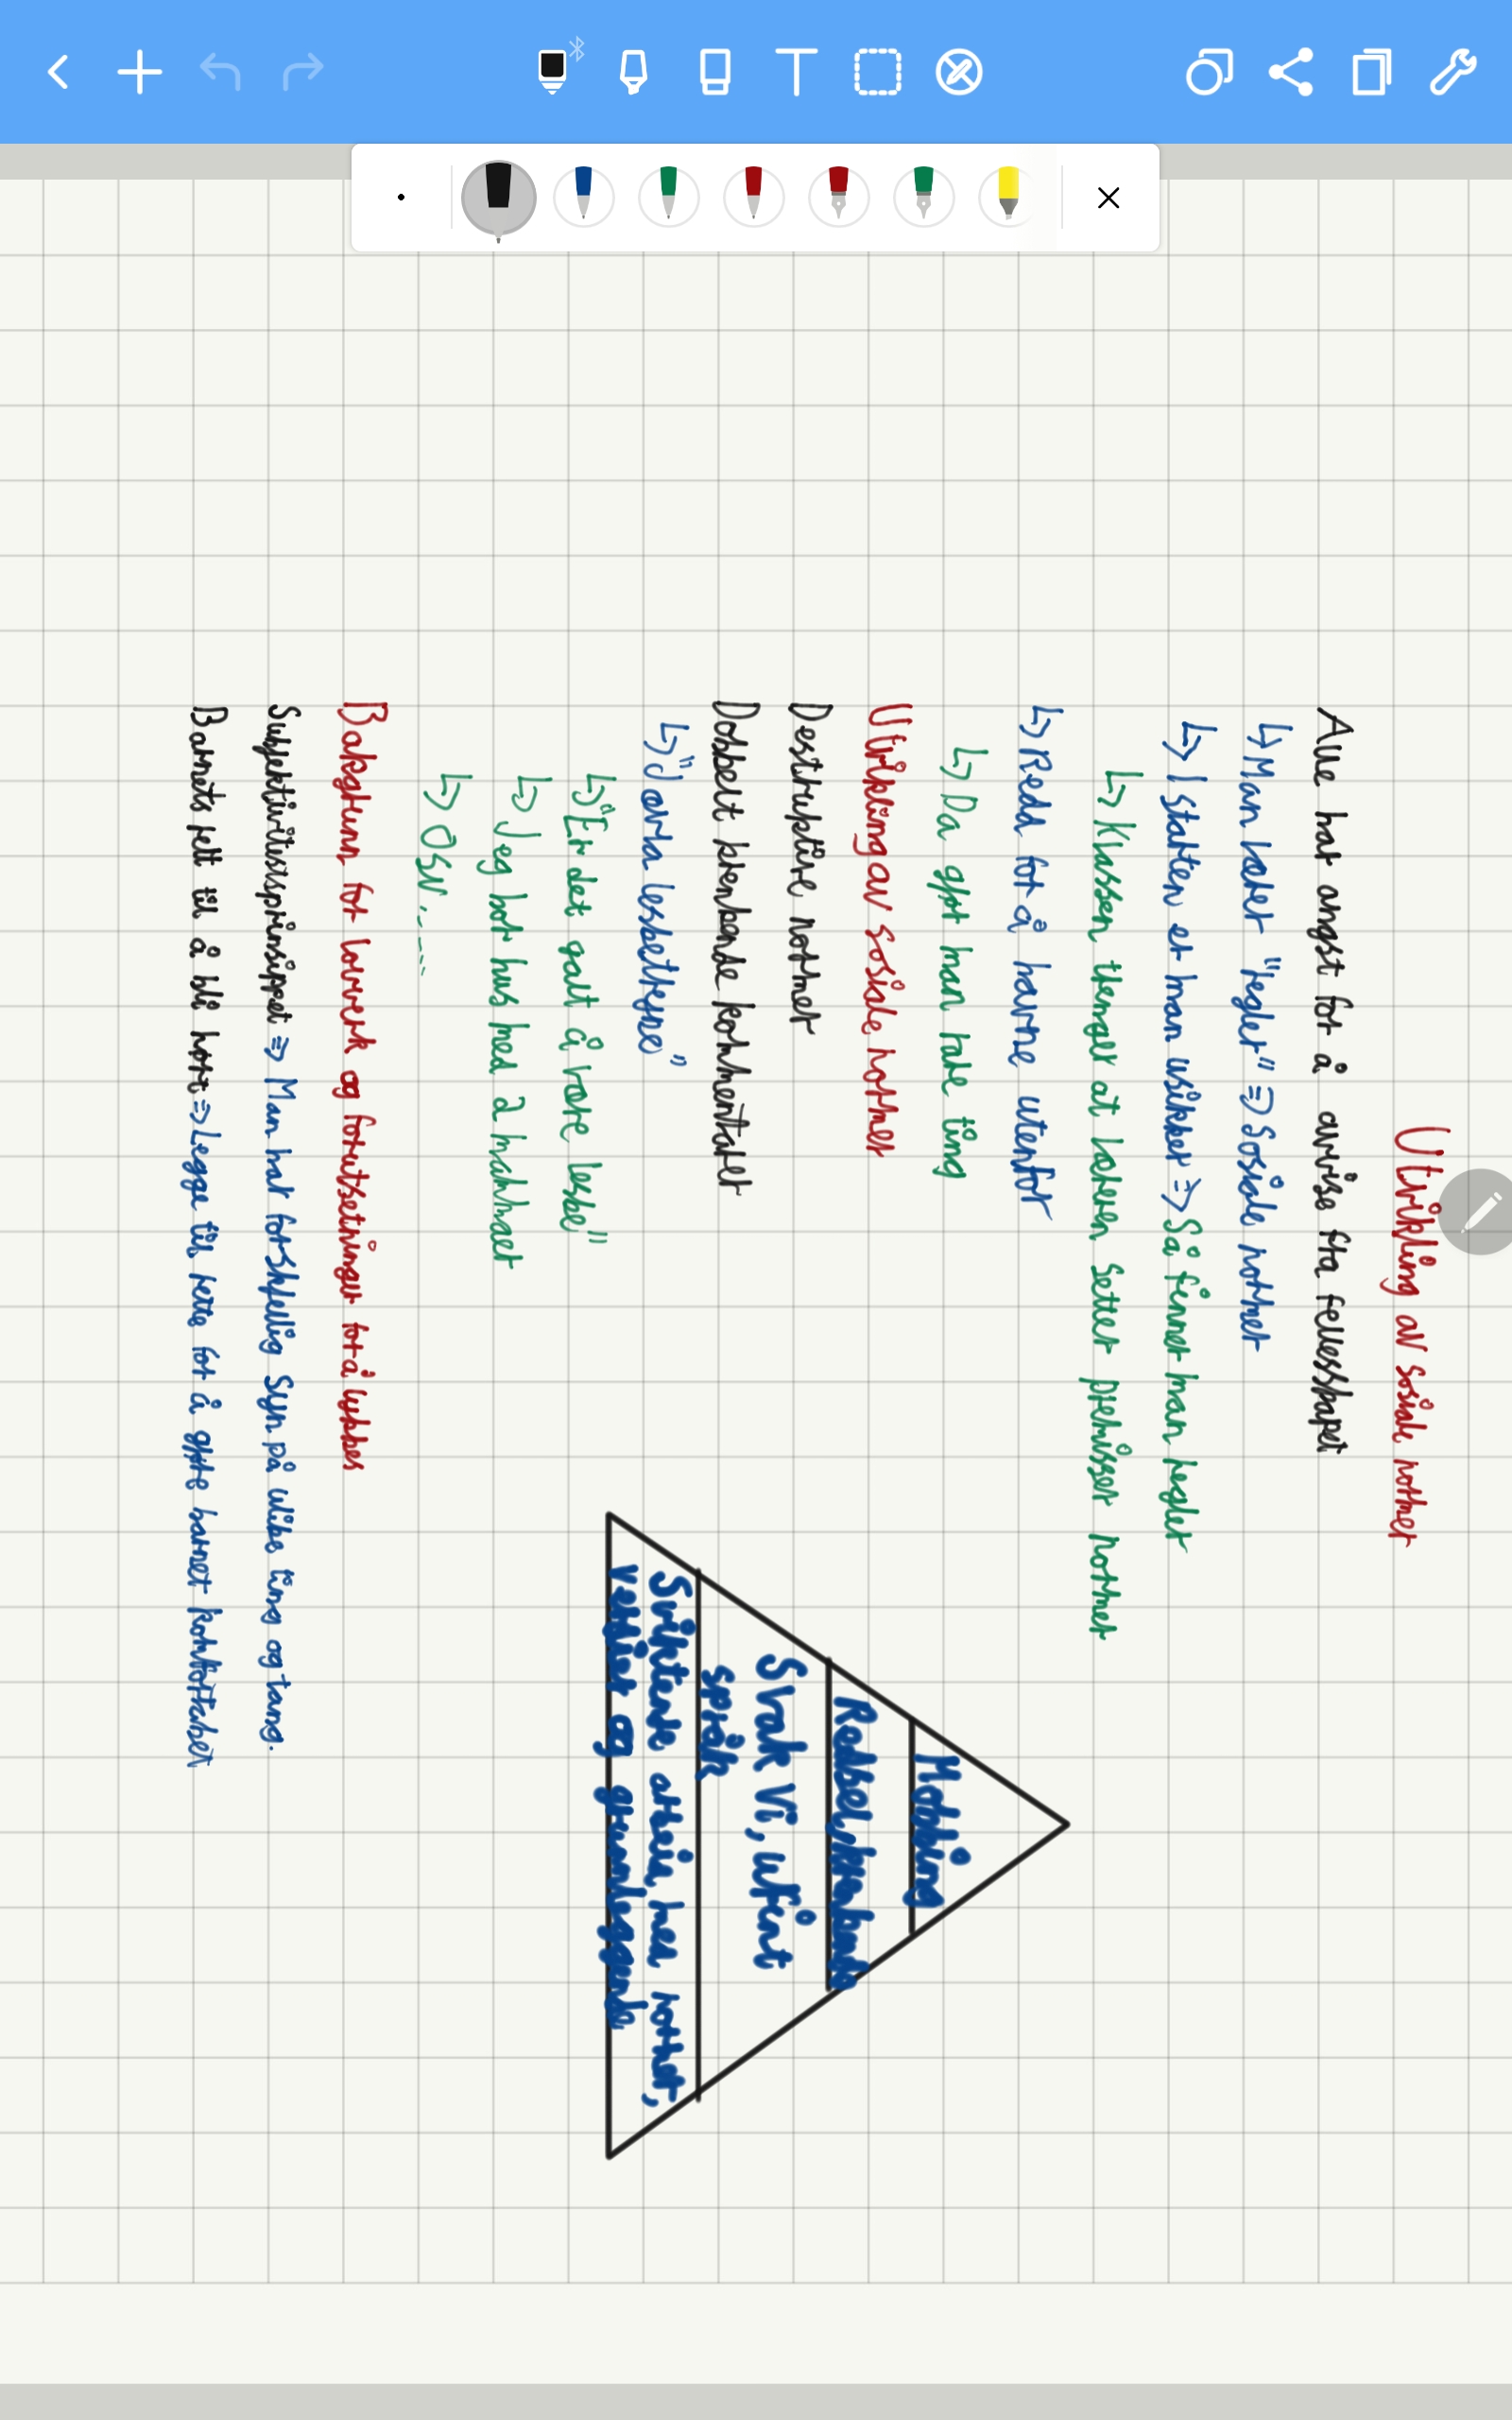 Utvikling av sosiale normer
Alle har angst for å avvise fra fellesskapet
↳ Man lærer "regler" => Sosiale normer
↳ I starten er man usikker => Så finner man regler
↳ Klassen trenger at læreren setter premisser normer
↳ Redd for å havne utenfor
↳ Da gjør man rare ting
Utvikling av sosiale normer
Destruktive normer
Dobbelt krenkende kommentarer
↳ "Jævla lesbetryne"
↳ "Er det galt å være lesbe"
↳ Jeg bor hus med 2 mammaer
↳ OSV.----
Bakgrunn for lovverk og forutsetninger for å lykkes
Subjektivitetsprinsippet => Man har forskjellig syn på ulike ting og tang.
Barnets rett til å bli hørt => Legge til rette for å gjøre barnet komfortabel
Mobbing
Redsel, krenkende
Svak Vi, ufint
språk
Sviktende attein men normer,
verdier og grunnleggende